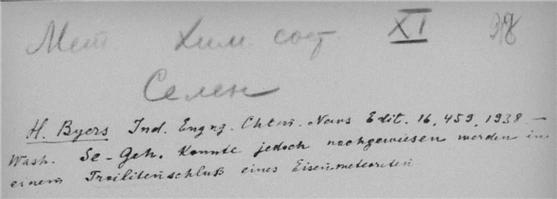 Мет. Хим. сост XI 98
Селен
H. Byers Ind. Engng. Chem. News Edit. 16, 459, 1938. —
Wash. Se-Geh. Konnte jedoch nachgewiesen werden in
einem Troiliteinschluß eines Eisenmeteoriten